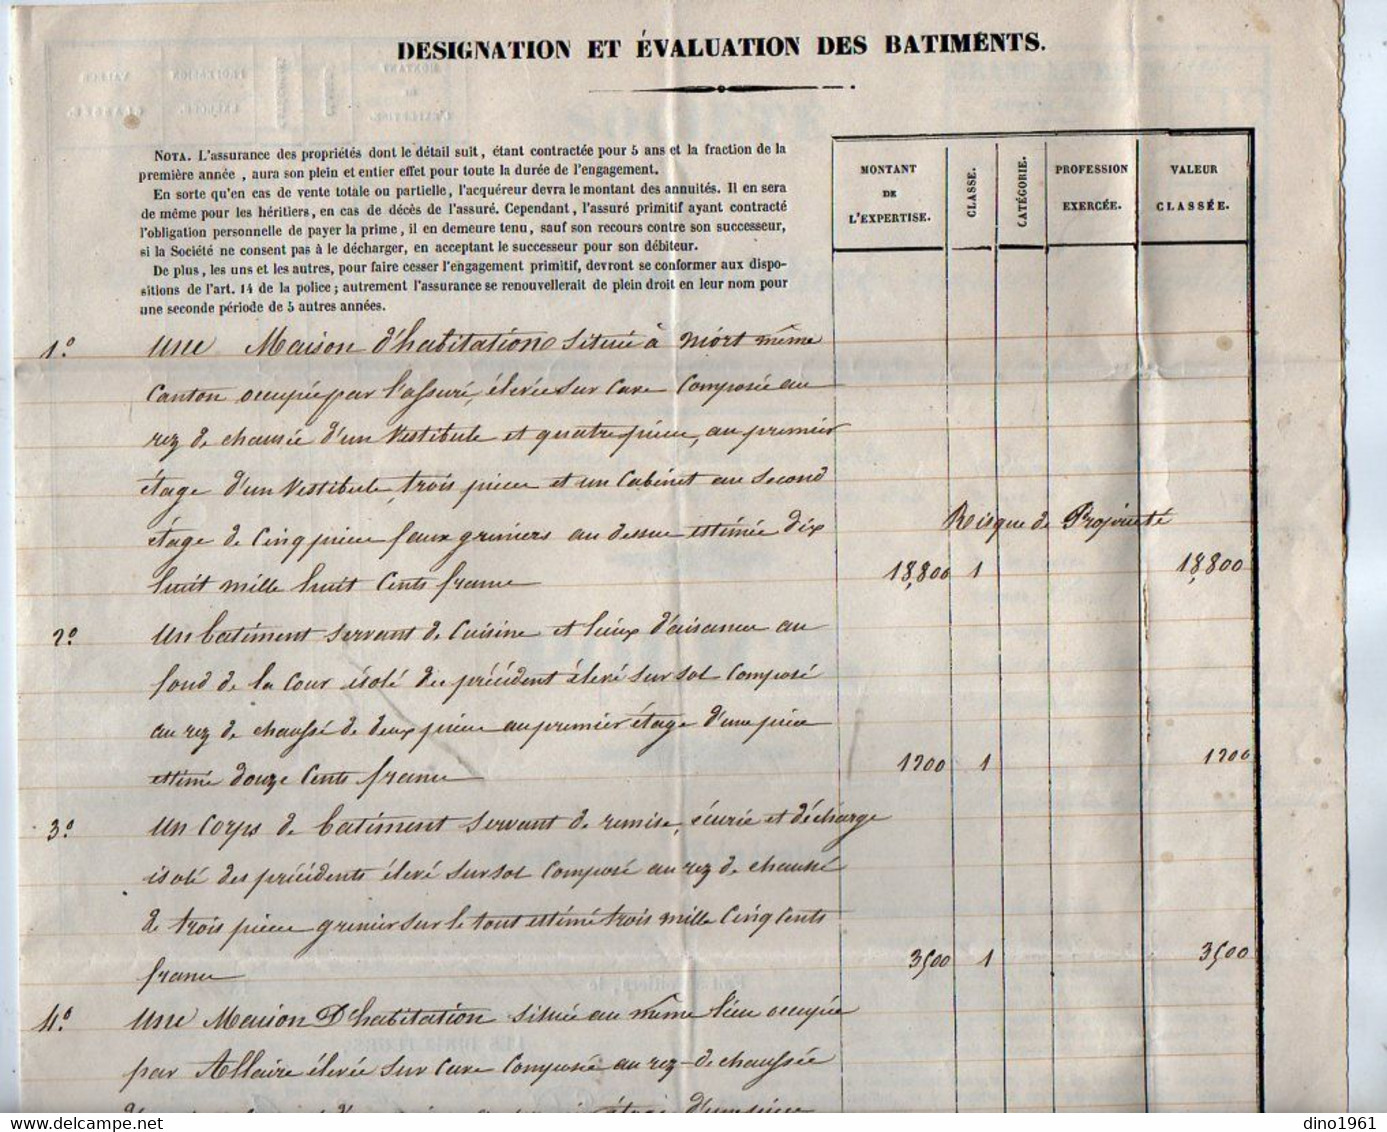 DESIGNATION ET ÉVALUATION DES BATIMENTS.
NOTA. L'assurance des propriétés dont le détail suit, étant contractée pour 5 ans et la fraction de la
première année, aura son plein et entier effet pour toute la durée de l'engagement.
En sorte qu'en cas de vente totale ou partielle, l'acquéreur devra le montant des annuités. Il en sera
de même pour les héritiers, en cas de décès de l'assuré. Cependant, l'assuré primitif ayant contracté
l'obligation personnelle de payer la prime, il en demeure tenu, sauf son recours contre son successeur,
si la Société ne consent pas à le décharger, en acceptant le successeur pour son débiteur.
De plus, les uns et les autres, pour faire cesser l'engagement primitif, devront se conformer aux dispo-
sitions de l'art. 14 de la police; autrement l'assurance se renouvellerait de plein droit en leur nom pour
une seconde période de 5 autres années.
MONTANT DE L'EXPERTISE.
CLASSE.
CATÉGORIE.
PROFESSION EXERCÉE.
VALEUR CLASSÉE.
1.° Une Maison d'habitation située à Niort même
Canton occupée par l'assuré, élevée sur Cave Composée au
rez de chausée d'un Vestibule et quatre pièces, au premier
étage d'un Vestibule, trois pièces et un Cabinet au Second
étage de Cinq pièces faux greniers au dessus estimée dix
Risque de Propriété
huit mille huit Cents francs 18,800 1 18,800
2.° Un batiment servant de Cuisine et lieux d'aisances au
fond de la Cour isolé du précédent élevé sur sol Composé
au rez de chaussé de deux pièces au premier étage d'une pièce
estimé douze Cents francs 1200 1 1200
3.° Un Corps de batiment servant de remise, écurie et décharge
isolé des précédents élevé sur sol Composé au rez de chaussé
de trois pièces grenier sur le tout estimé trois mille Cinq Cents
francs 3500 1 3500
4.° Une Maison D'habitation située au même lieu occupée
par Allaire élevée sur Cave Composée au rez-de-chaussée
étage d'une pièce
dino1961